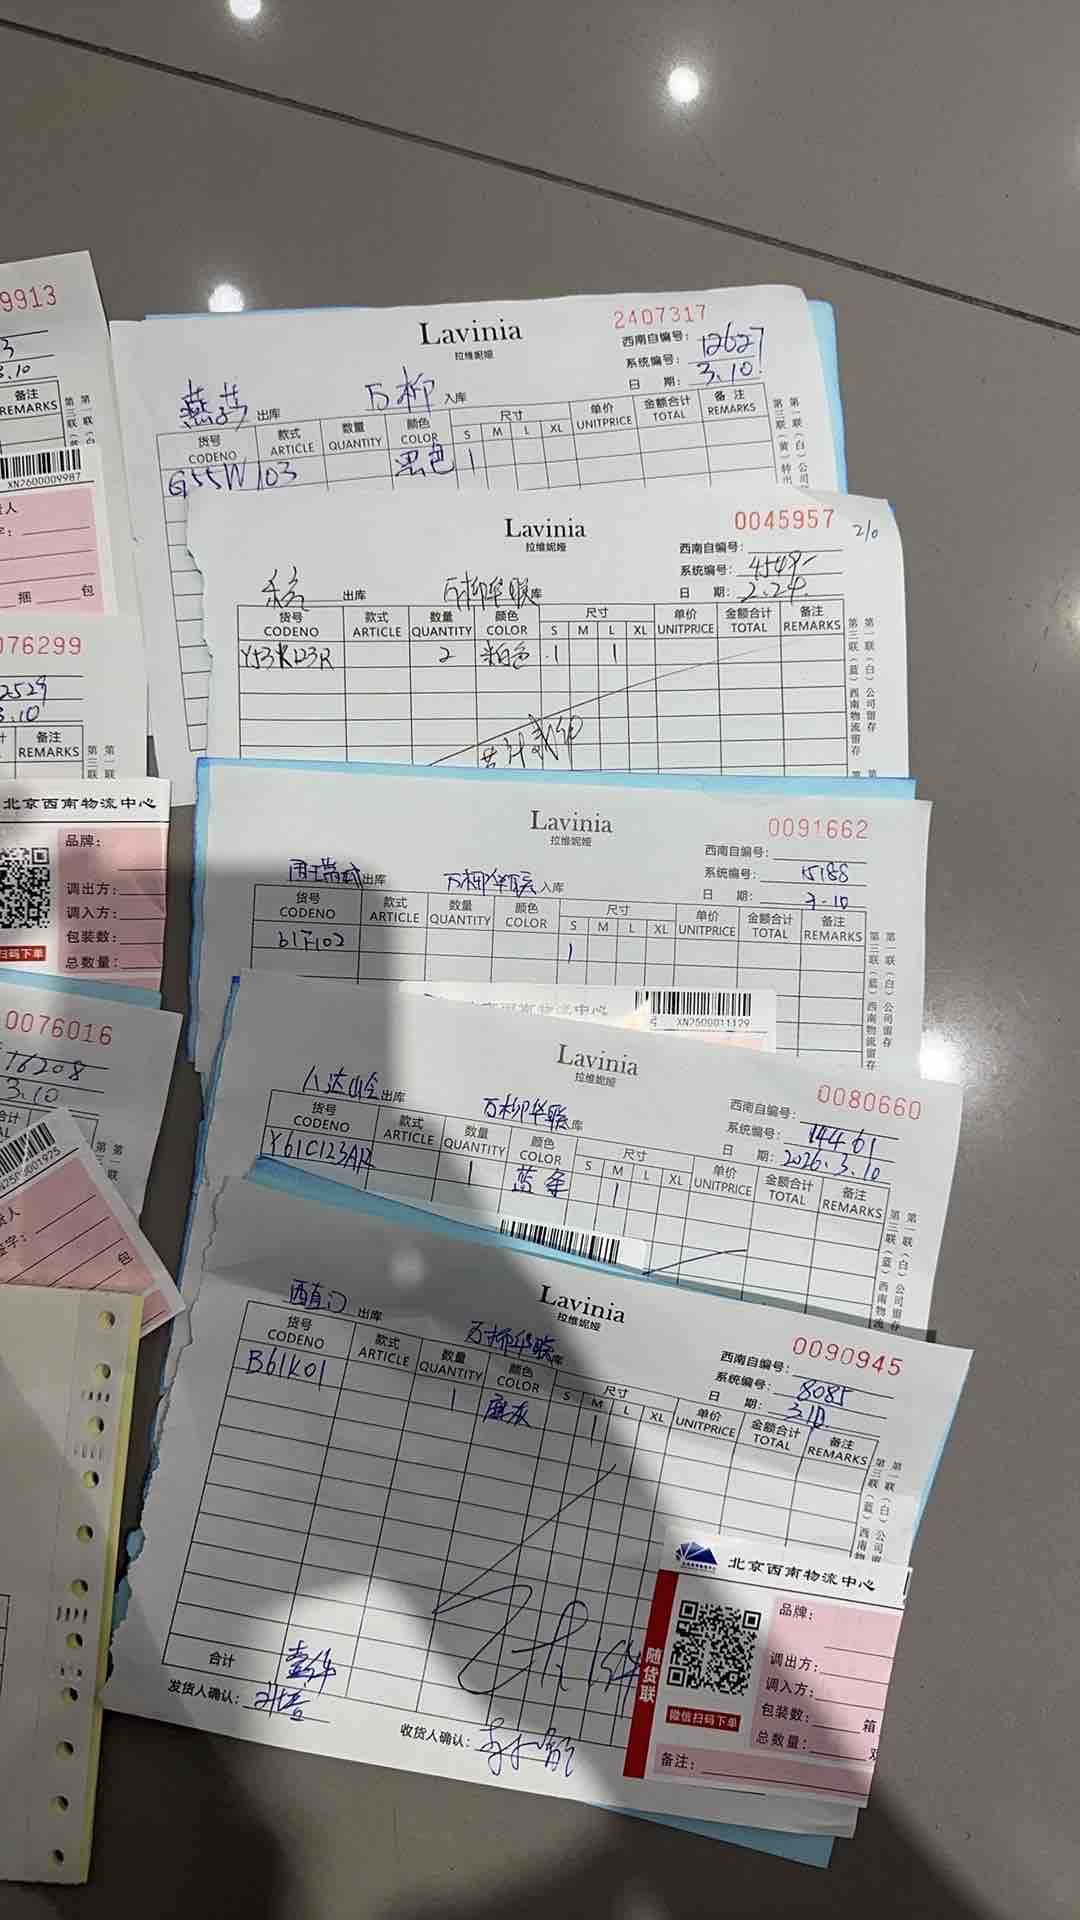 9913
3
3.10
备注
REMARKS
第一联
第三联
XN2600009987
签字:
捆 包
076299
2529
3.10
备注
REMARKS
第一
第三
北京西南物流中心
品牌:
调出方:
调入方:
包装数:
总数量:
扫码下单
0076016
16208
3.10
包
Lavinia
拉维妮娅
2407317
西南自编号:
系统编号: 12627
日 期: 3.10.
燕莎 出库 万柳 入库
货号 款式 数量 颜色 尺寸 单价 金额合计 备注
CODENO ARTICLE QUANTITY COLOR S M L XL UNITPRICE TOTAL REMARKS
G55W103 黑色 1
第一联(白)公司
第三联(黄)转出
Lavinia
拉维妮娅
0045957
2/0
西南自编号:
系统编号: 4549
日 期: 2.24.
出库 万柳华联 库
货号 款式 数量 颜色 尺寸 单价 金额合计 备注
CODENO ARTICLE QUANTITY COLOR S M L XL UNITPRICE TOTAL REMARKS
Y53K123R 2 粉色 1 1
共计贰件
第一联(白)公司留存
第三联(蓝)西南物流留存
Lavinia
拉维妮娅
0091662
西南自编号:
系统编号: 15188
日 期: 3.10
出库 万柳华联 入库
货号 款式 数量 颜色 尺寸 单价 金额合计 备注
CODENO ARTICLE QUANTITY COLOR S M L XL UNITPRICE TOTAL REMARKS
61F102 1
第一联(白)公司留存
第三联(蓝)西南物流留存
西南物流中心
XN2500011129
Lavinia
拉维妮娅
0080660
西南自编号:
系统编号: 14461
日 期: 2026.3.10
八达岭 出库 万柳华联 库
货号 款式 数量 颜色 尺寸 单价 金额合计 备注
CODENO ARTICLE QUANTITY COLOR S M L XL UNITPRICE TOTAL REMARKS
Y61C123AR 1 蓝条 1
第一联(白)公司留存
第三联(蓝)西南物
Lavinia
拉维妮娅
0090945
西南自编号:
系统编号: 8085
日 期: 3.10
西直门 出库 万柳华联 库
货号 款式 数量 颜色 尺寸 单价 金额合计 备注
CODENO ARTICLE QUANTITY COLOR S M L XL UNITPRICE TOTAL REMARKS
B61K01 1 麻灰 1
第一联(白)公司
第三联(蓝)西南物
合计 壹件
发货人确认:
收货人确认:
北京西南物流中心
随货联
品牌:
调出方:
调入方:
包装数: 箱
总数量: 双
微信扫码下单
备注: